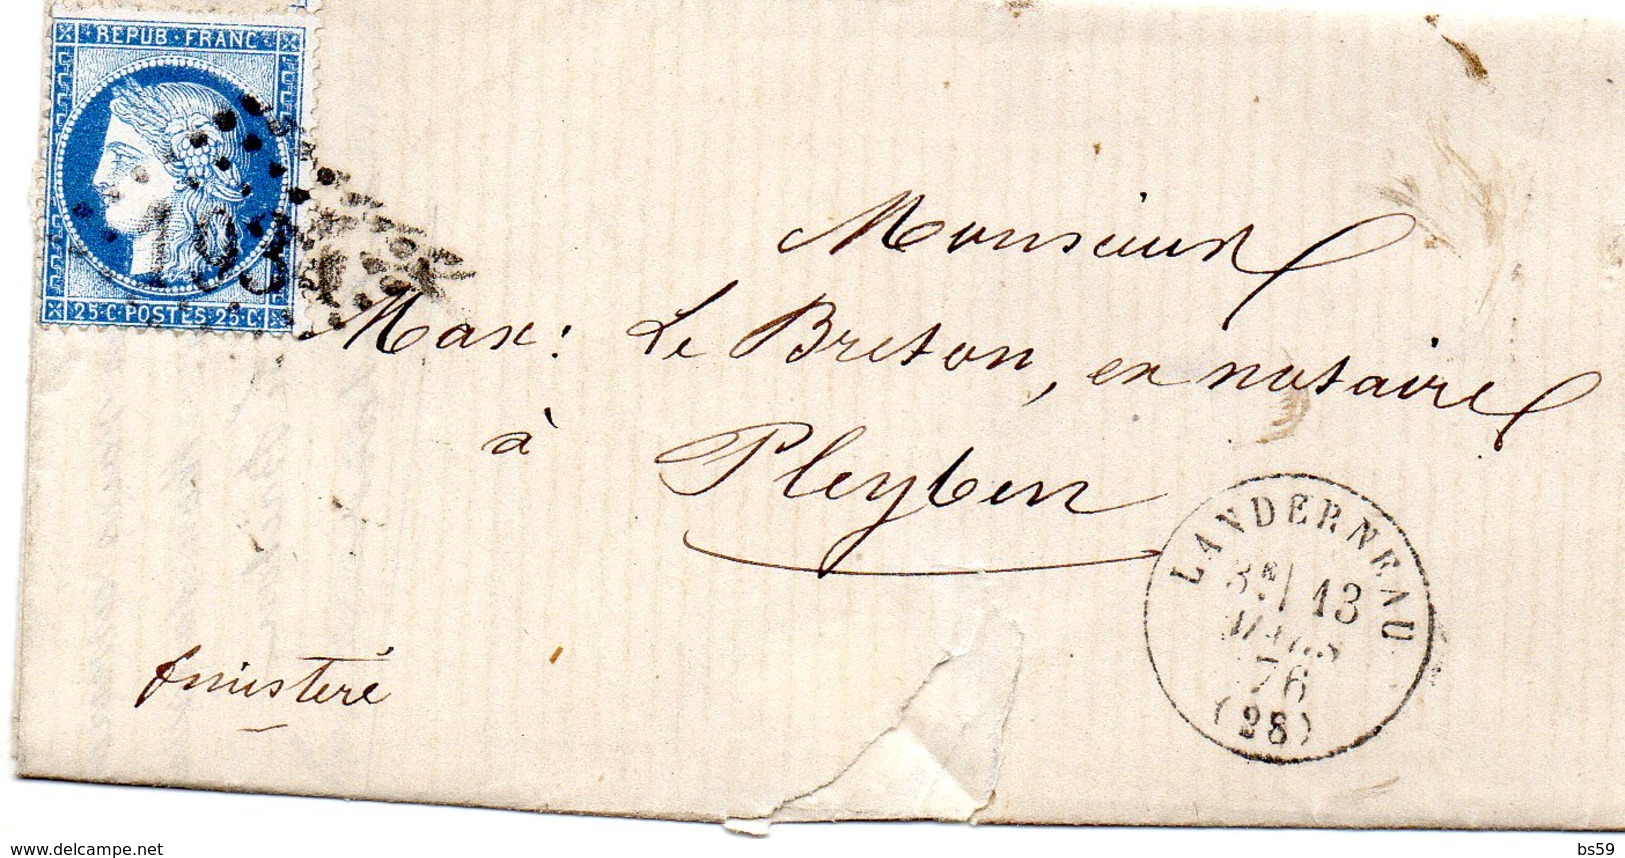 REPUB·FRANC
193
25·C·POSTES 25·C
Monsieur
Max: Le Breton, en notaire
à Pleyben
finistère
LANDERNEAU
3E/ 13
MARS
76
(28)
www.delcampe.net
bs59